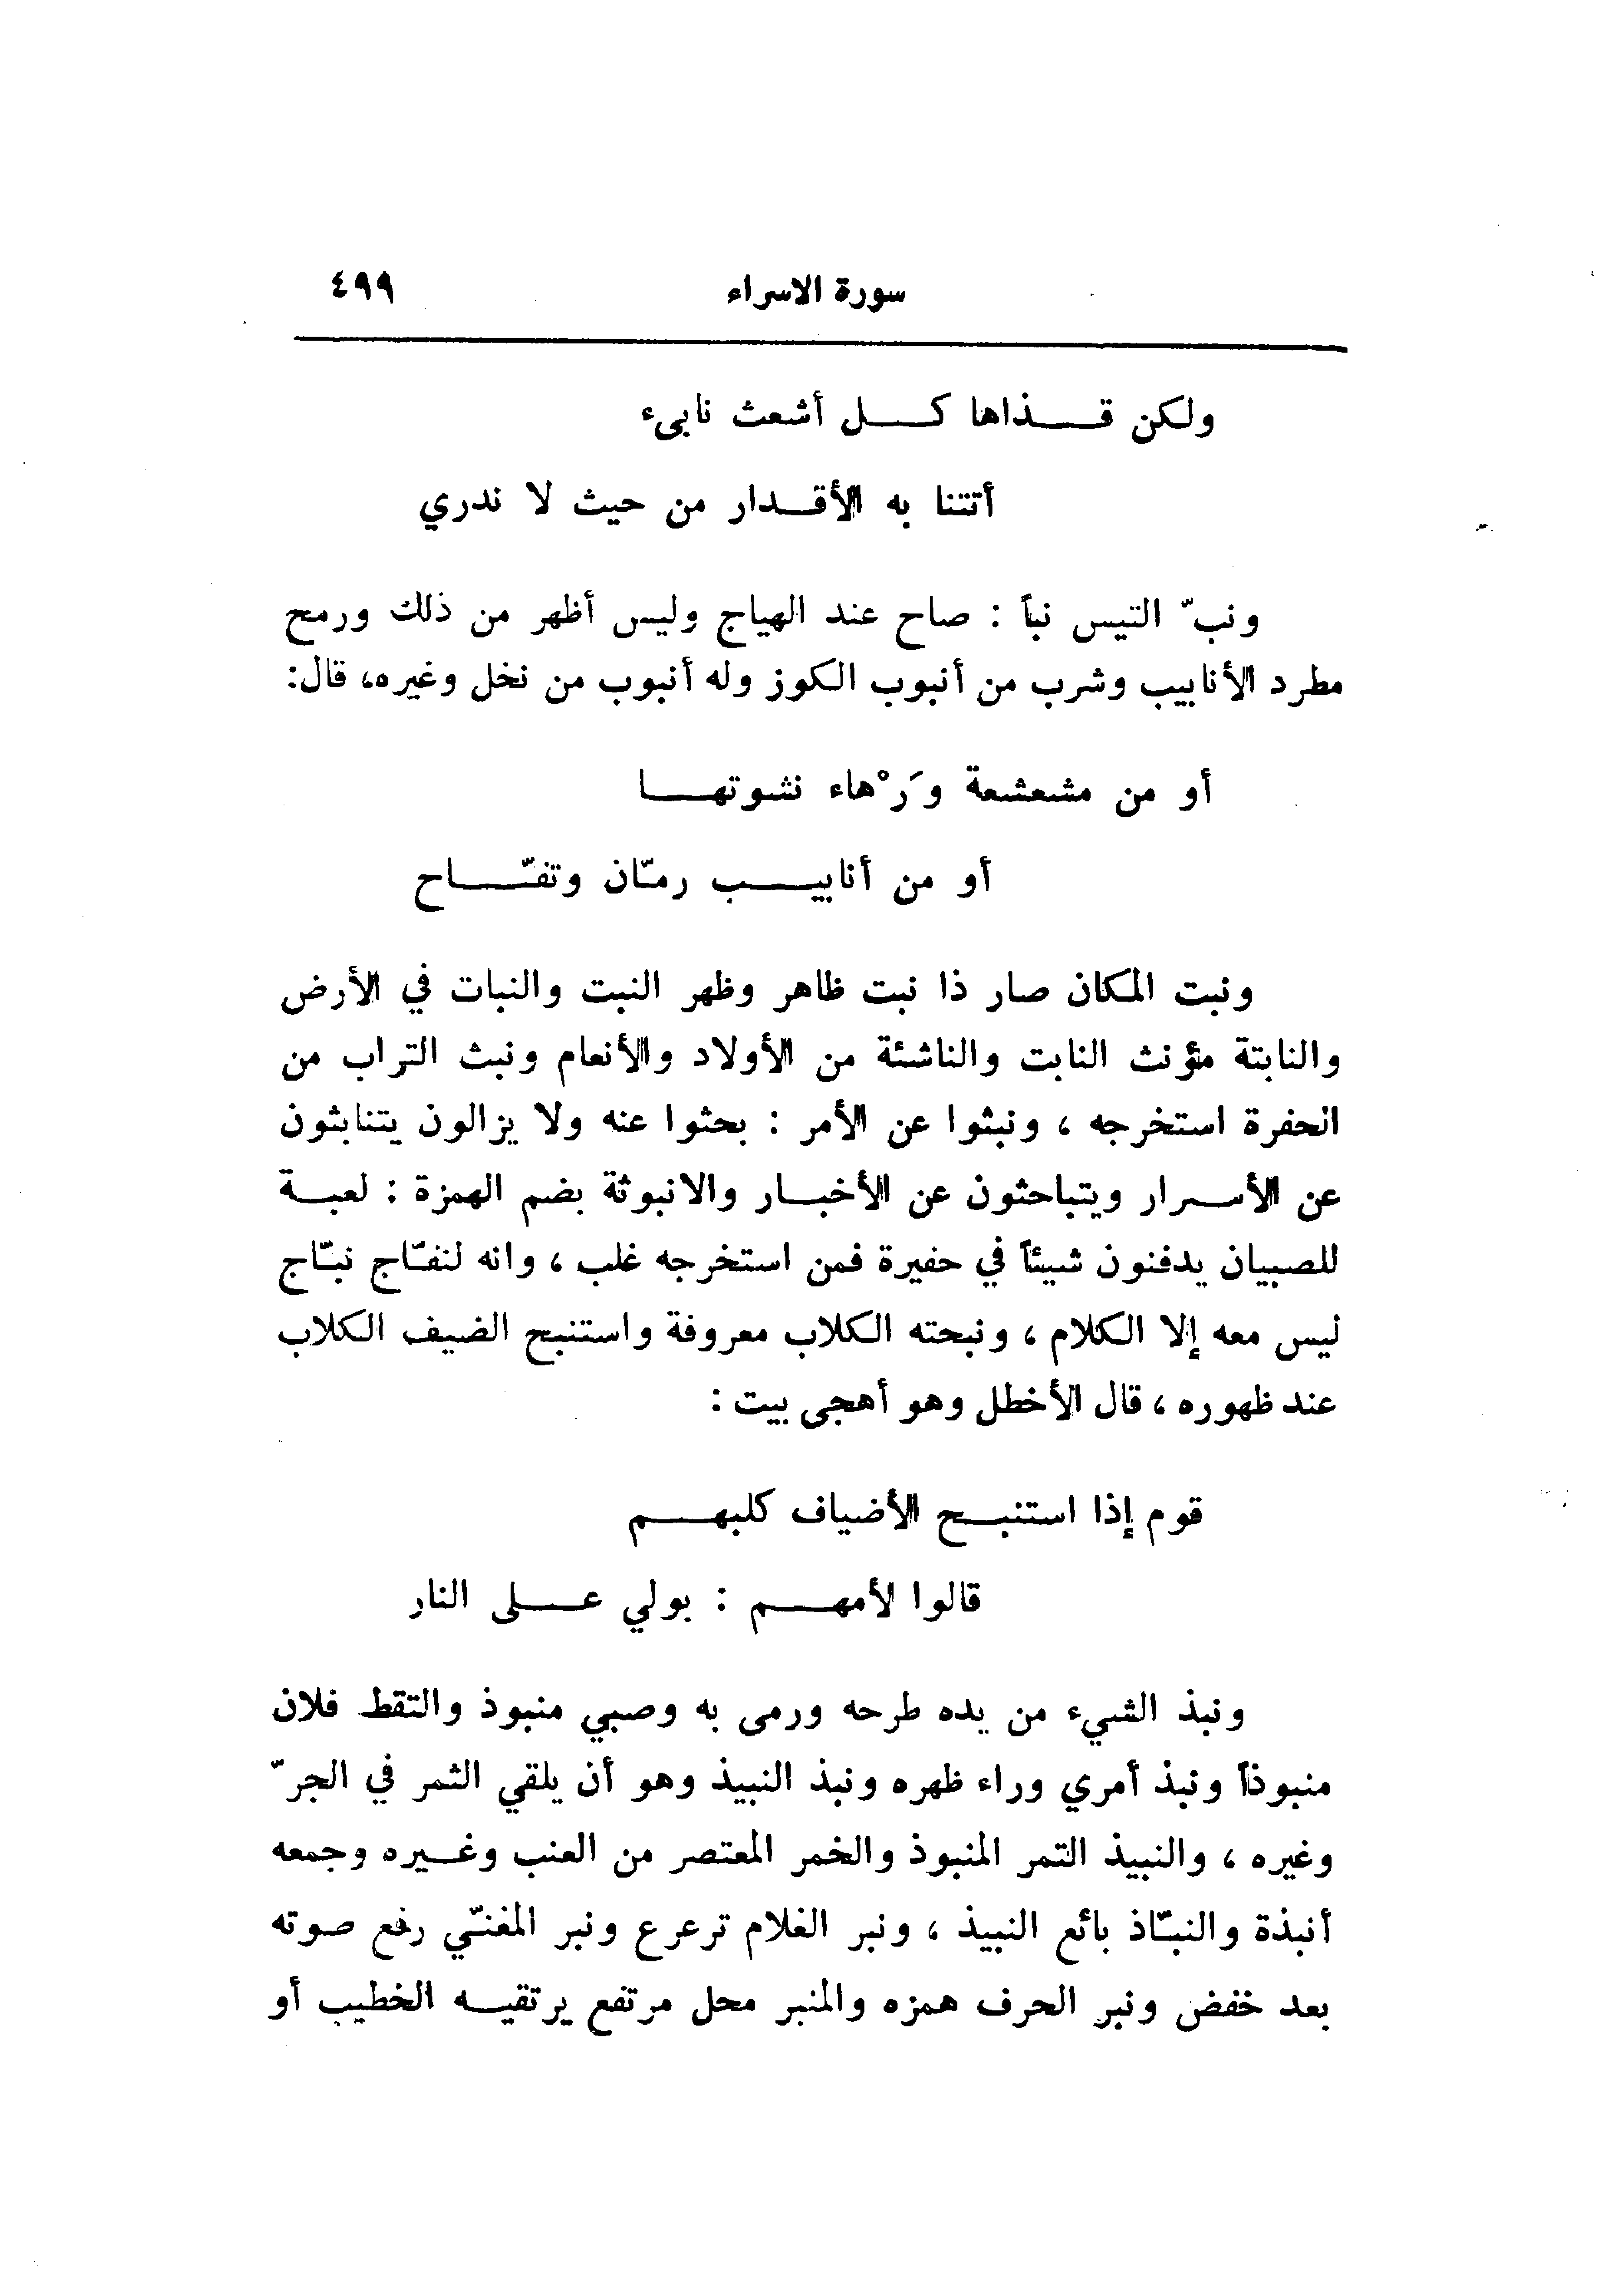 سورة الاسراء ٤٩٩
ولكن قذاها كل أشعث نابىء
أتتنا به الأقدار من حيث لا ندري
ونبّ التيس نباً : صاح عند الهياج وليس أظهر من ذلك ورمح
مطرد الأنابيب وشرب من أنبوب الكوز وله أنبوب من نخل وغيره، قال:
أو من مشعشعة وَرْهاء نشوتها
أو من أنابيب رمّان وتفّاح
ونبت المكان صار ذا نبت ظاهر وظهر النبت والنبات في الأرض
والنابتة مؤنث النابت والناشئة من الأولاد والأنعام ونبث التراب من
الحفرة استخرجه ، ونبثوا عن الأمر : بحثوا عنه ولا يزالون يتنابثون
عن الأسرار ويتباحثون عن الأخبار والانبوثة بضم الهمزة : لعبة
للصبيان يدفنون شيئاً في حفيرة فمن استخرجه غلب ، وانه لنفّاج نبّاج
ليس معه إلا الكلام ، ونبحته الكلاب معروفة واستنبح الضيف الكلاب
عند ظهوره ، قال الأخطل وهو أهجى بيت :
قوم إذا استنبح الأضياف كلبهم
قالوا لأمهم : بولي على النار
ونبذ الشيء من يده طرحه ورمى به وصبي منبوذ والتقط فلان
منبوذاً ونبذ أمري وراء ظهره ونبذ النبيذ وهو أن يلقي الثمر في الجرّ
وغيره ، والنبيذ التمر المنبوذ والخمر المعتصر من العنب وغيره وجمعه
أنبذة والنبّاذ بائع النبيذ ، ونبر الغلام ترعرع ونبر المغنّي رفع صوته
بعد خفض ونبر الحرف همزه والمنبر محل مرتفع يرتقيه الخطيب أو